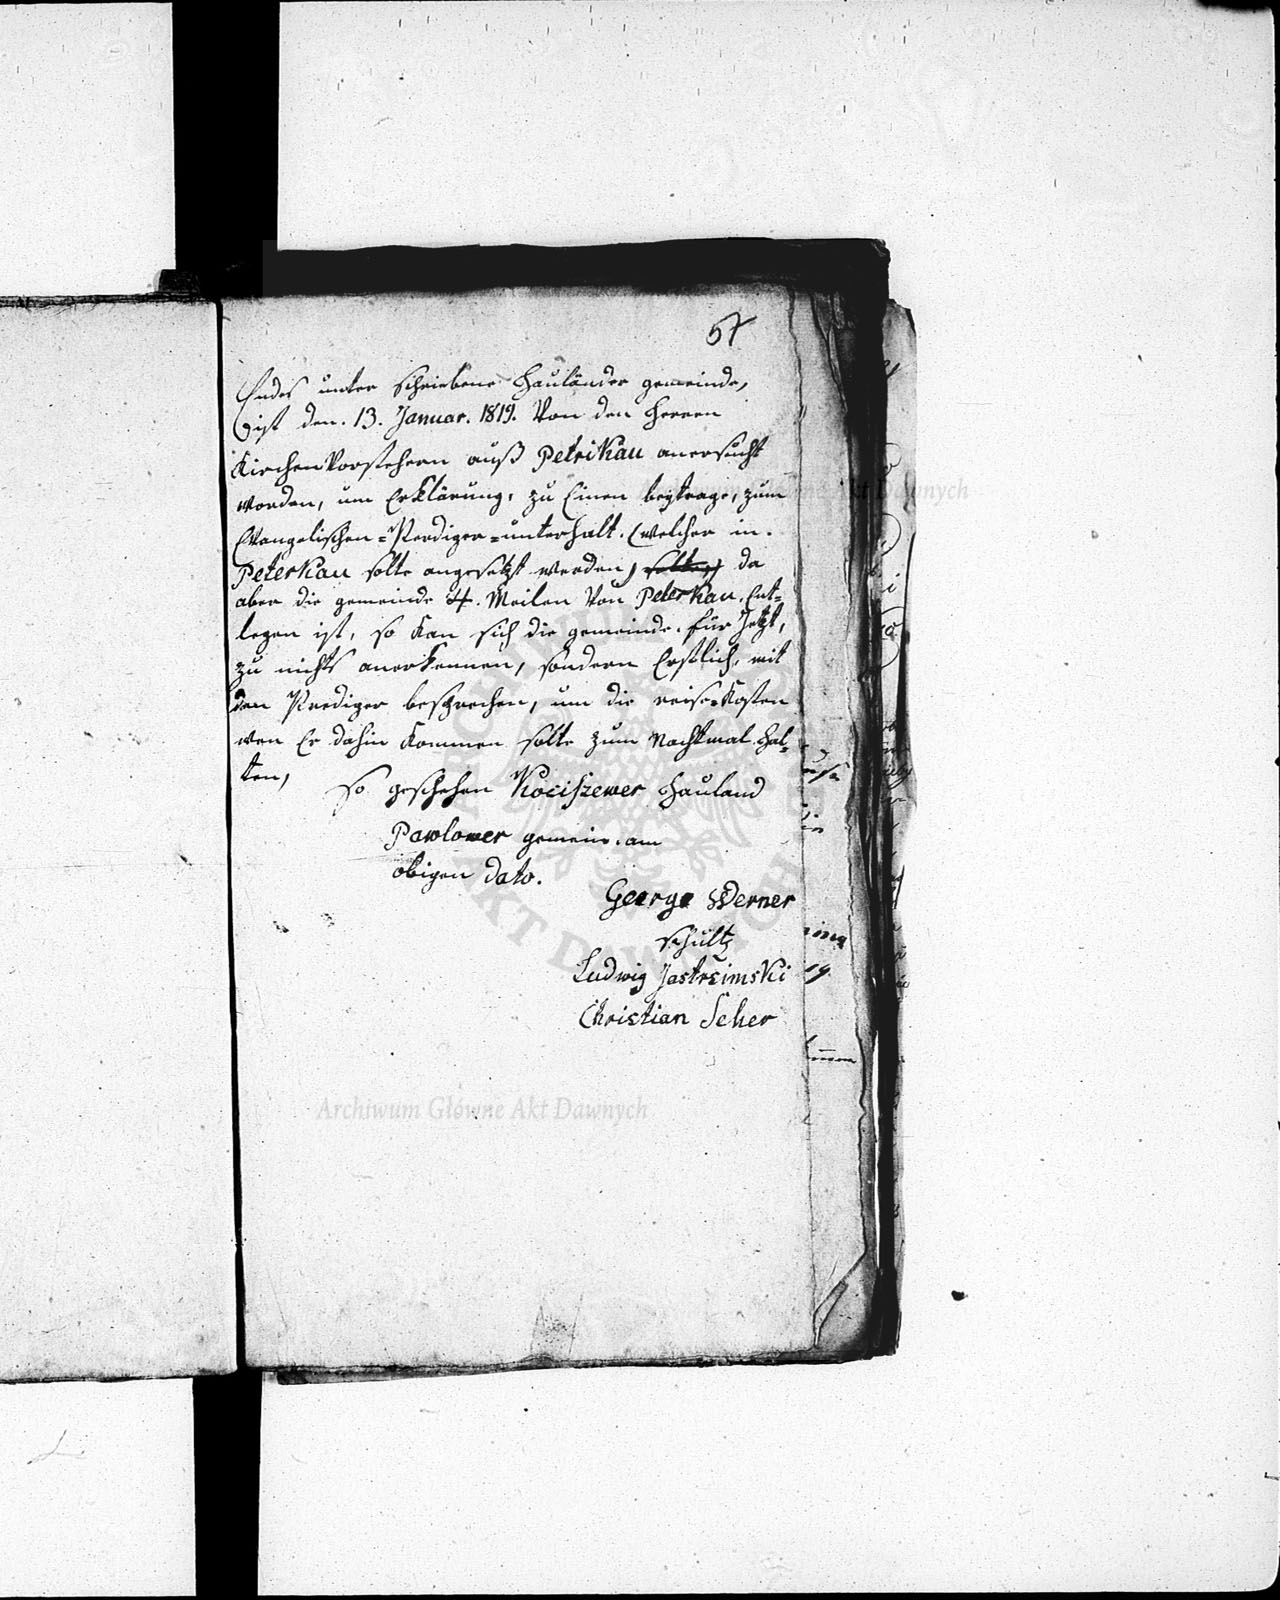 57
Endes unter schriebene Hauländer gemeinde,
ist den. 13. Januar. 1819. Von den Herren
KirchenVorstehern auß Petrikau anersucht
worden, um ErKlärung, zu Einen beytrage, zum
Evangelischen = Prediger = unterhalt. (welcher in.
Peterkau solte angesetzt werden) solte, da
aber die gemeinde 4. Meilen Von Peterkau. Ent-
legen ist, so kan sich die gemeinde. für Jetzt,
zu nichts anerkennen, sondern Erstlich, mit
den Prediger besprechen, um die reise=Kosten
wen Er dahin kommen solte zum Nachtmal. hal-
ten,
So geschehen Kociszewer Hauland
Pawlower gemein. am
obigen Dato.
George Werner
Schultz
Ludwig Jastrzimski
Christian Seher
Archiwum Główne Akt Dawnych
Archiwum Główne Akt Dawnych